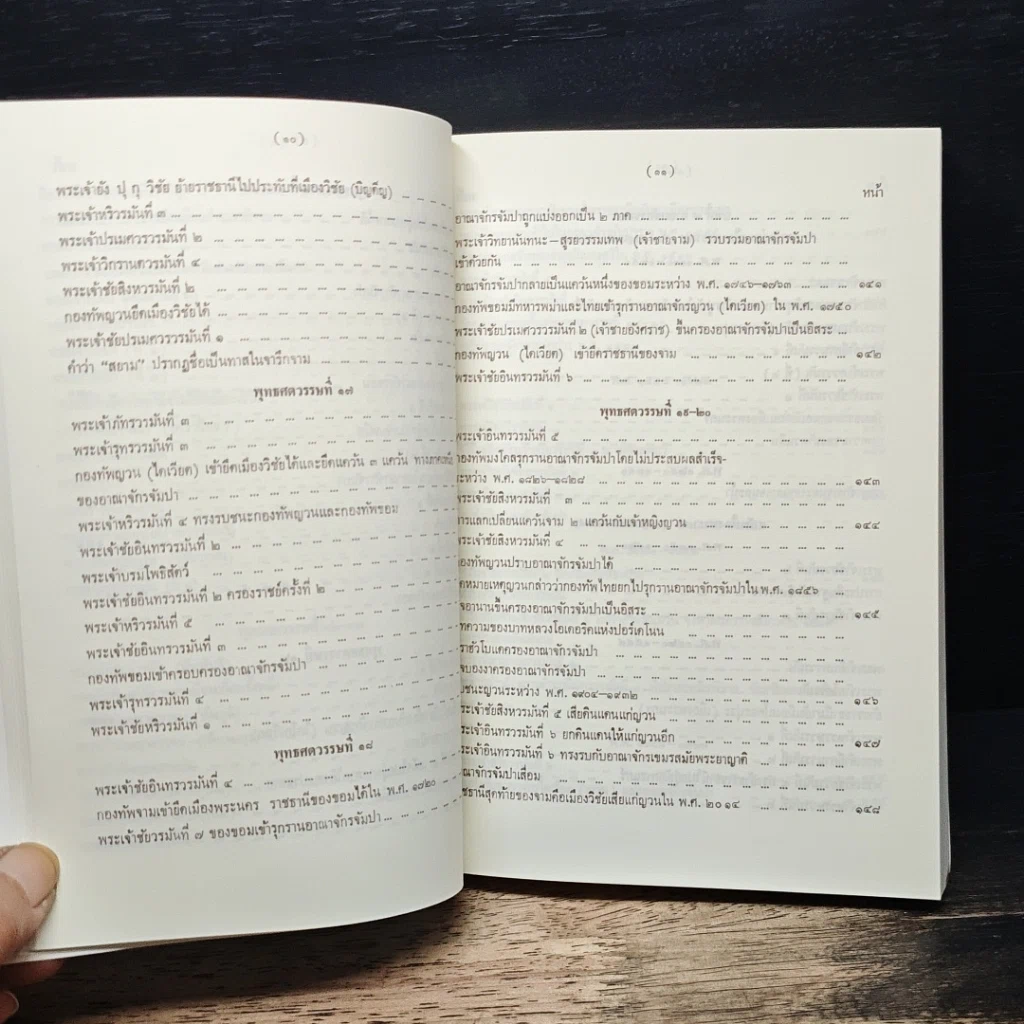 (๑๐)
พระเจ้ายัง ปุ กุ วิชัย ย้ายราชธานีไปประทับที่เมืองวิชัย (บิญดิญ)
พระเจ้าหริวรมันที่ ๓
พระเจ้าปรเมศวรวรมันที่ ๒
พระเจ้าวิกรานตวรมันที่ ๔
พระเจ้าชัยสิงหวรมันที่ ๒
กองทัพญวนยึดเมืองวิชัยได้
พระเจ้าชัยปรเมศวรวรมันที่ ๑
คำว่า “สยาม” ปรากฏชื่อเป็นทาสในจารึกจาม
พุทธศตวรรษที่ ๑๗
พระเจ้าภัทรวรมันที่ ๓
พระเจ้ารุทรวรมันที่ ๓
กองทัพญวน (ไดเวียด) เข้ายึดเมืองวิชัยได้และยึดแคว้น ๓ แคว้น ทางภาคเหนือ
ของอาณาจักรจัมปา
พระเจ้าหริวรมันที่ ๔ ทรงรบชนะกองทัพญวนและกองทัพขอม
พระเจ้าชัยอินทรวรมันที่ ๒
พระเจ้าบรมโพธิสัตว์
พระเจ้าชัยอินทรวรมันที่ ๒ ครองราชย์ครั้งที่ ๒
พระเจ้าหริวรมันที่ ๕
พระเจ้าชัยอินทรวรมันที่ ๓
กองทัพขอมเข้าครอบครองอาณาจักรจัมปา
พระเจ้ารุทรวรมันที่ ๔
พระเจ้าชัยหริวรมันที่ ๑
พุทธศตวรรษที่ ๑๘
พระเจ้าชัยอินทรวรมันที่ ๔
กองทัพจามเข้ายึดเมืองพระนคร ราชธานีของขอมได้ใน พ.ศ. ๑๗๒๐
พระเจ้าชัยวรมันที่ ๗ ของขอมเข้ารุกรานอาณาจักรจัมปา
(๑๑)
หน้า
อาณาจักรจัมปาถูกแบ่งออกเป็น ๒ ภาค
พระเจ้าวิทยานันทนะ–สูรยวรรมเทพ (เจ้าชายจาม) รวบรวมอาณาจักรจัมปา
เข้าด้วยกัน
อาณาจักรจัมปากลายเป็นแคว้นหนึ่งของขอมระหว่าง พ.ศ. ๑๗๔๖–๑๗๖๓ ๑๔๑
กองทัพขอมมีทหารพม่าและไทยเข้ารุกรานอาณาจักรญวน (ไดเวียด) ใน พ.ศ. ๑๗๕๐
พระเจ้าชัยปรเมศวรวรมันที่ ๒ (เจ้าชายอังศราช) ขึ้นครองอาณาจักรจัมปาเป็นอิสระ
กองทัพญวน (ไดเวียด) เข้ายึดราชธานีของจาม ๑๔๒
พระเจ้าชัยอินทรวรมันที่ ๖
พุทธศตวรรษที่ ๑๙–๒๐
พระเจ้าอินทรวรมันที่ ๕
กองทัพมงโคลรุกรานอาณาจักรจัมปาโดยไม่ประสบผลสำเร็จ–
ระหว่าง พ.ศ. ๑๘๒๖–๑๘๒๘ ๑๔๓
พระเจ้าชัยสิงหวรมันที่ ๓
การแลกเปลี่ยนแคว้นจาม ๒ แคว้นกับเจ้าหญิงญวน ๑๔๔
พระเจ้าชัยสิงหวรมันที่ ๔
กองทัพญวนปราบอาณาจักรจัมปาได้
ดหมายเหตุญวนกล่าวว่ากองทัพไทยยกไปรุกรานอาณาจักรจัมปาใน พ.ศ. ๑๘๕๖
จอานานขึ้นครองอาณาจักรจัมปาเป็นอิสระ ๑๔๕
ทความของบาทหลวงโอเดอริคแห่งปอร์เดโนน
ราฮัวโบแดครองอาณาจักรจัมปา
จบองงาครองอาณาจักรจัมปา
บชนะญวนระหว่าง พ.ศ. ๑๙๐๔–๑๙๓๒ ๑๔๖
ระเจ้าชัยสิงหวรมันที่ ๕ เสียดินแดนแก่ญวน
ระเจ้าอินทรวรมันที่ ๖ ยกดินแดนให้แก่ญวนอีก ๑๔๗
ระเจ้าอินทรวรมันที่ ๖ ทรงรบกับอาณาจักรเขมรสมัยพระยาญาติ
ณาจักรจัมปาเสื่อม
ชธานีสุดท้ายของจามคือเมืองวิชัยเสียแก่ญวนใน พ.ศ. ๒๐๑๔ ๑๔๘